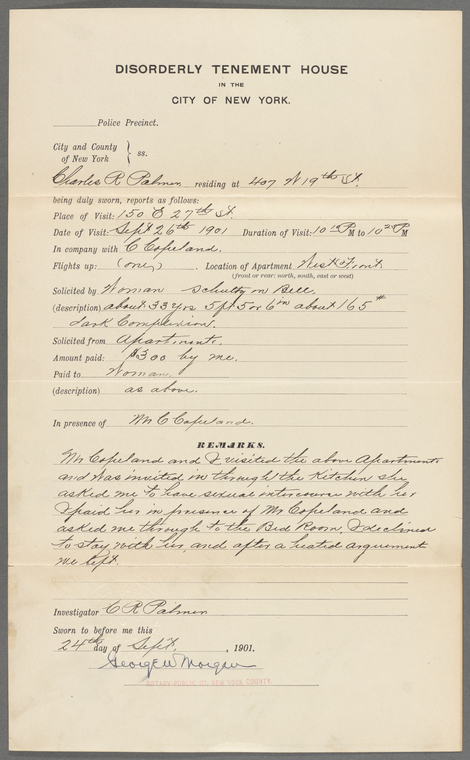 DISORDERLY TENEMENT HOUSE
IN THE
CITY OF NEW YORK.
Police Precinct.
City and County
of New York } ss.
Charles R Palmer residing at 407 W 19th St.
being duly sworn, reports as follows:
Place of Visit: 150 E 27th St.
Date of Visit: Sept 26th 1901 Duration of Visit: 10 15 P M to 10 25 P M
In company with C Copeland.
Flights up: (one) . Location of Apartment West Front
(front or rear: north, south, east or west)
Solicited by Woman Schultz on Bell.
(description) about 33 yrs 5 ft 5 or 6 in about 165 #
dark Complexion.
Solicited from Apartment.
Amount paid: $3 00 by me.
Paid to Woman.
(description) as above.
In presence of Mr C Copeland.
REMARKS.
Mr Copeland and I visited the above Apartments
and was invited in through the Kitchen she
asked me to have sexual intercourse with her
I paid her in presence of Mr Copeland and
asked me through to the Bed Room, I declined
to stay with her, and after a heated arguement
we left.
Investigator C R Palmer
Sworn to before me this
24th day of Sept. , 1901.
George W Morgan
NOTARY PUBLIC, NEW YORK COUNTY.